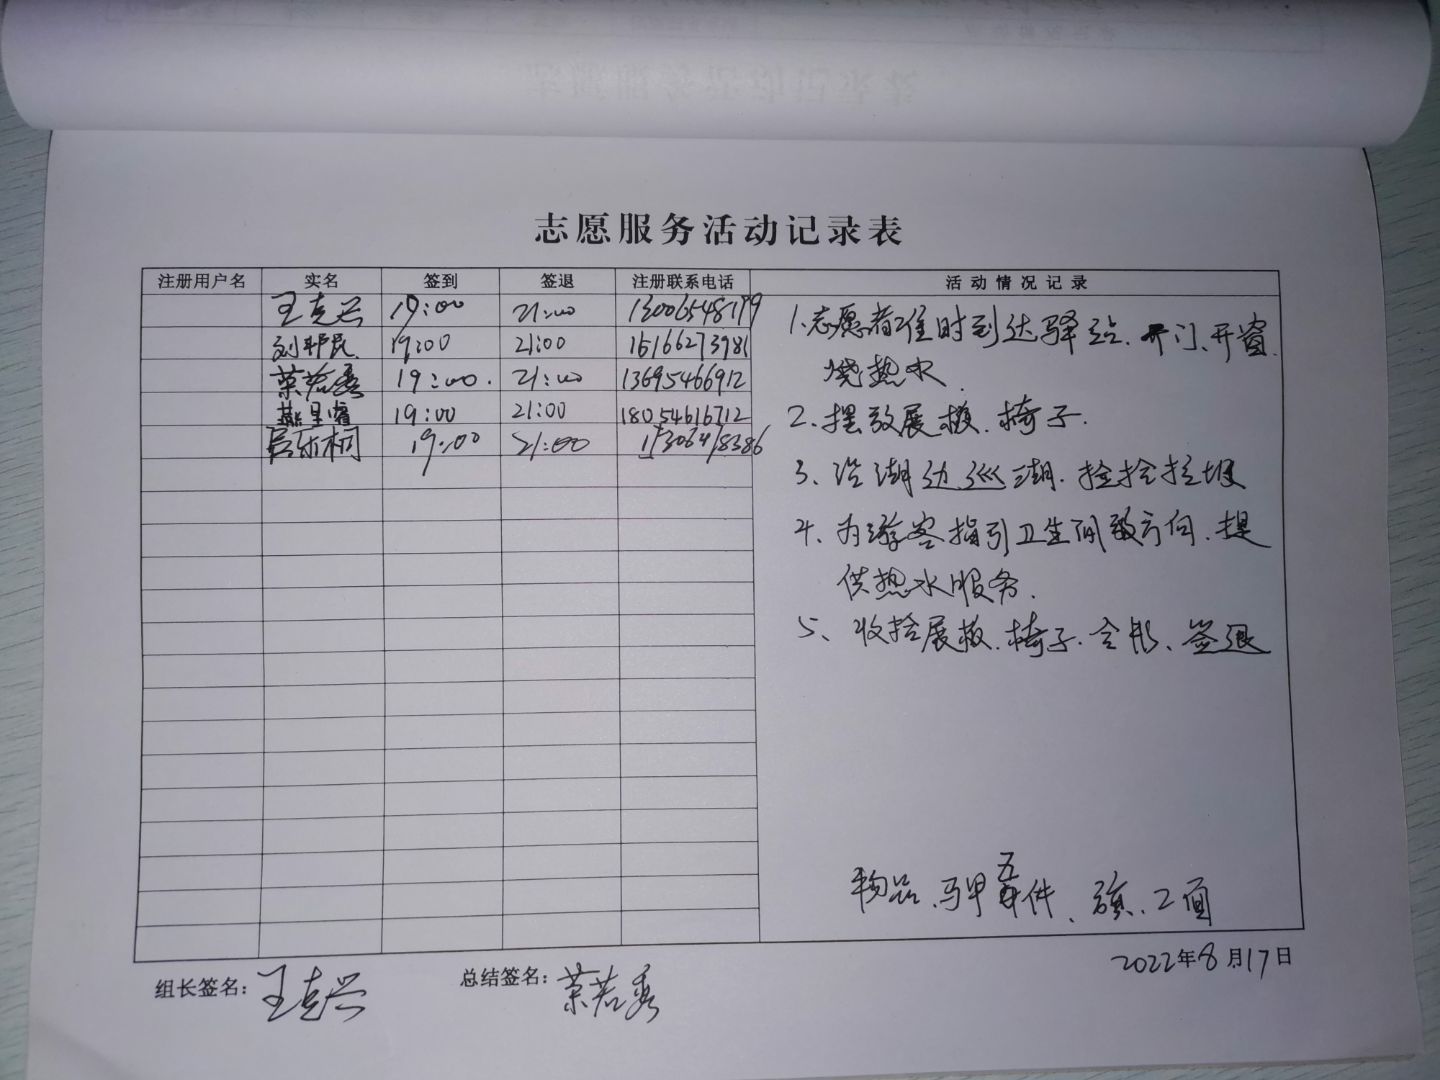 志愿服务活动记录表
注册用户名 实名 签到 签退 注册联系电话 活动情况记录
王克兴 19:00 21:00
19:00 21:00 15166273981
荣若秀 19:00. 21:00 13695466912
19:00 21:00 18054616712
19:00 21:00
1.志愿者准时到达驿站.开门、开窗.
烧热水.
2、摆放展板.椅子.
3、沿湖边巡湖.捡拾垃圾
4、为游客指引卫生间方向.提
供热水服务.
5、收拾展板.椅子.合影、签退
物品、马甲五件、旗.二面
2022年8月17日
组长签名:王克兴 总结签名:荣若秀